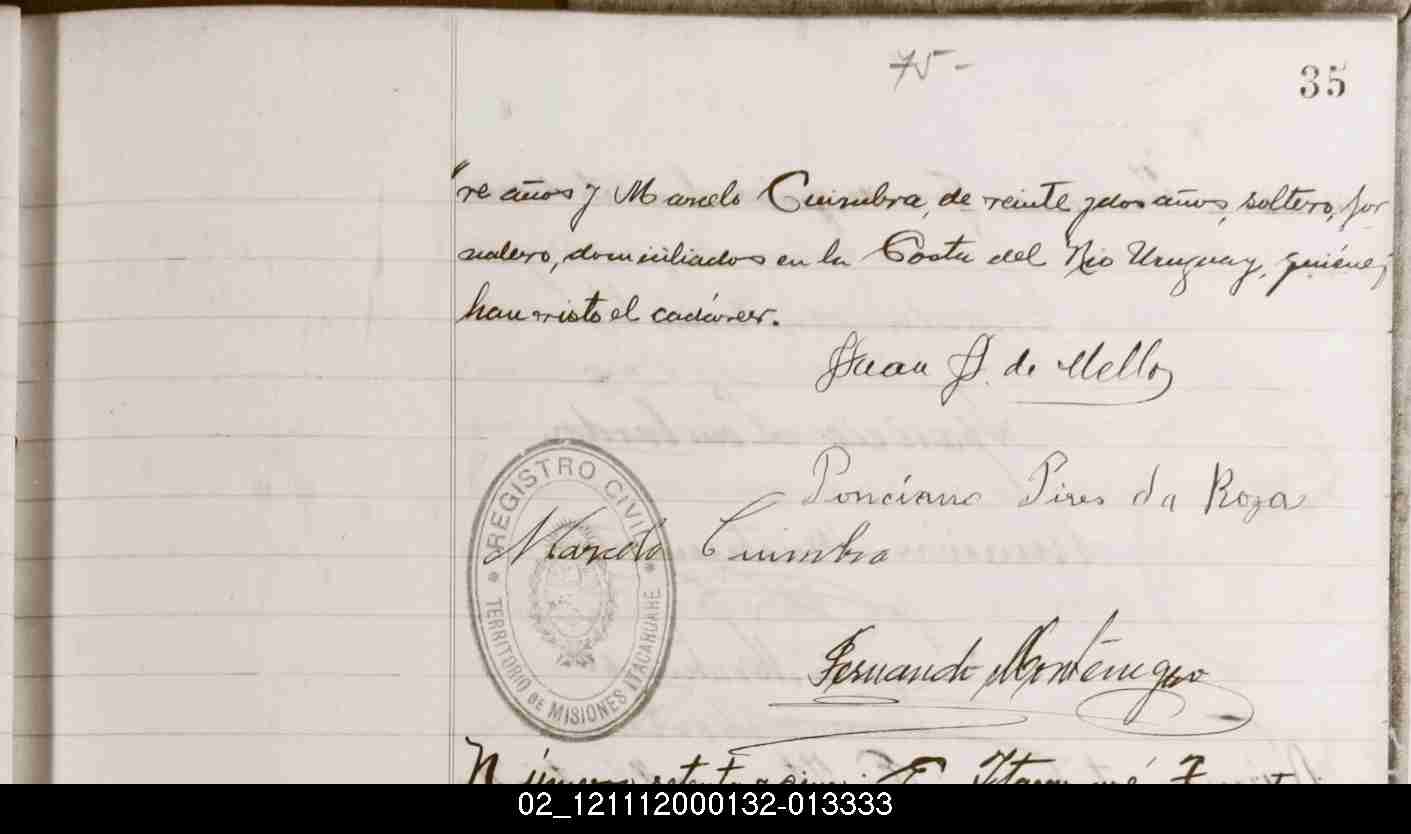 75-
35
"ve años y Marcelo Cuimbra, de veinte y dos años, soltero, jor
nalero, domiciliados en la Costa del Rio Uruguay, quiénes
han visto el cadáver.
Juan J. de Mello
Ponciano Pires da Roza
REGISTRO CIVIL
Marcelo Cuimbra
TERRITORIO DE MISIONES ITACARUARE
Fernando Montenegro
Número setenta y cinco: En
02_121112000132-013333